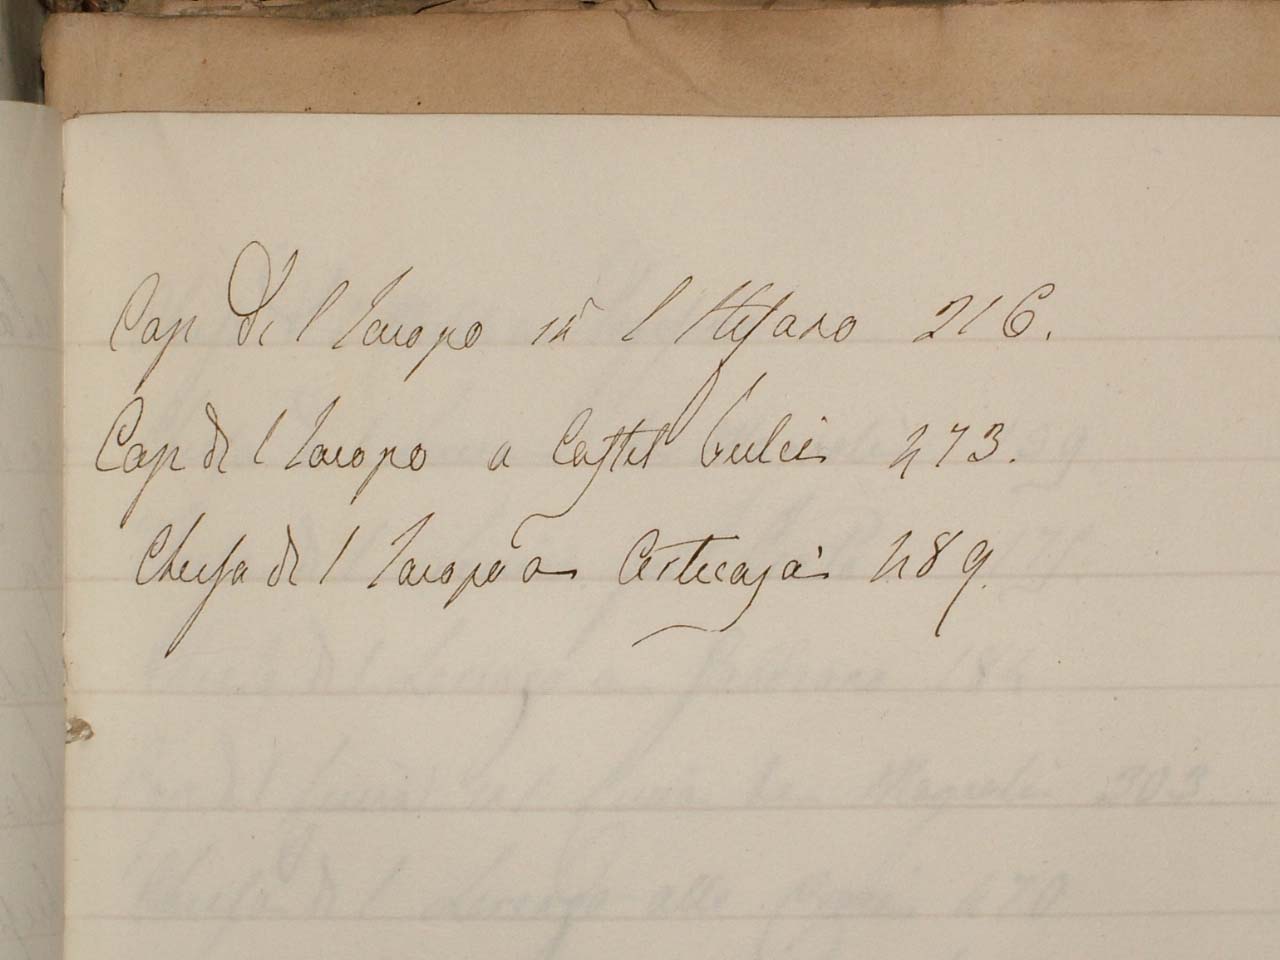 Cap di S Iacopo in S Stefano 216.
Cap di S Iacopo a Castel 273.
Chiesa di S Iacopo a 289.